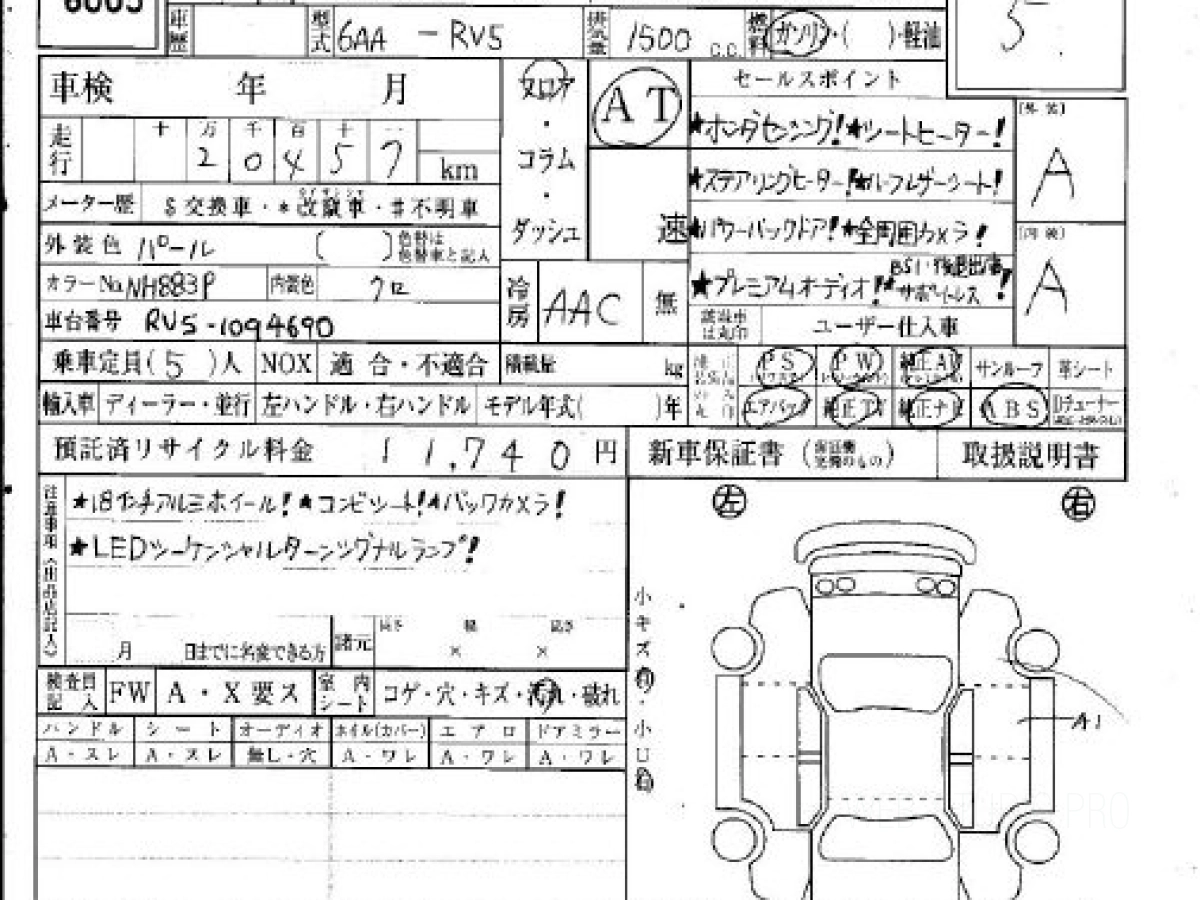 6005
車歴 型式 6AA - RV5 排気量 1500 C.C. 燃料 ガソリン・( )・軽油 5
車検 年 月 フロア・コラム・ダッシュ AT 速 セールスポイント
★ホンダセンシング!★シートヒーター!
走行 十 万 千 百 十 一
2 0 4 5 7 km
★ステアリングヒーター!★ハーフレザーシート!
メーター歴 $交換車・*改竄車・#不明車
★パワーバックドア!★全周囲カメラ!
外装色 パール ( ) 色替は色替車と記入
★プレミアムオーディオ!★BSI・後退出庫サポートレス!
[外装] A
[内装] A
カラーNo. NH883P 内装色 クロ 冷房 AAC 無
車台番号 RV5-1094690
該当車は丸印 ユーザー仕入車
乗車定員(5)人 NOX 適合・不適合 積載量 kg PS PW 純正AW サンルーフ 革シート
輸入車 ディーラー・並行 左ハンドル・右ハンドル モデル年式( )年 エアバック 純正TV 純正ナビ ABS Dチューナー
預託済リサイクル料金 11,740円 新車保証書 (保証書完備のもの) 取扱説明書
注意事項《出品店記入》
★18インチアルミホイール!★コンビシート!★バックカメラ!
★LEDシーケンシャルターンシグナルランプ!
月 日までに名変できる方 諸元 長さ 幅 高さ
× ×
検査員記入 FW A・X要ス 室内シート コゲ・穴・キズ・汚れ・破れ
ハンドル シート オーディオ ホイル(カバー) エアロ ドアミラー
A・スレ A・スレ 無し・穴 A・ワレ A・ワレ A・ワレ
左 右
小キズ有・小凹有
A1
PRO